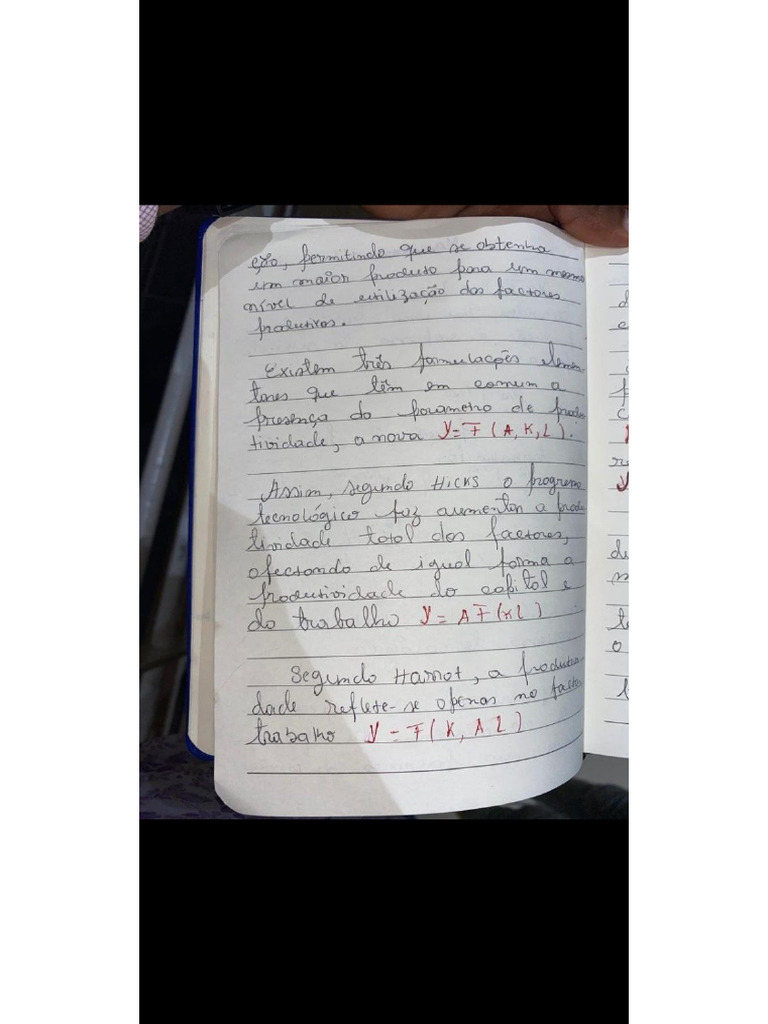 ção, permitindo que se obtenha
um maior produto para um mesmo
nível de utilização dos factores
produtivos.
Existem três formulações elemen
tares que têm em comum a
presença do parametro de produ
tividade, a nova Y = F (A, K, L).
Assim, segundo HICKS o progresso
tecnológico faz aumentar a produ
tividade total dos factores,
afectando de igual forma a
produtividade do capital e
do trabalho Y = A F (K L)
Segundo Harrot, a produtivi
dade reflete-se apenas no factor
trabalho Y = F (K, A L)
d
e
f
c
re
Y
de
m
te
o